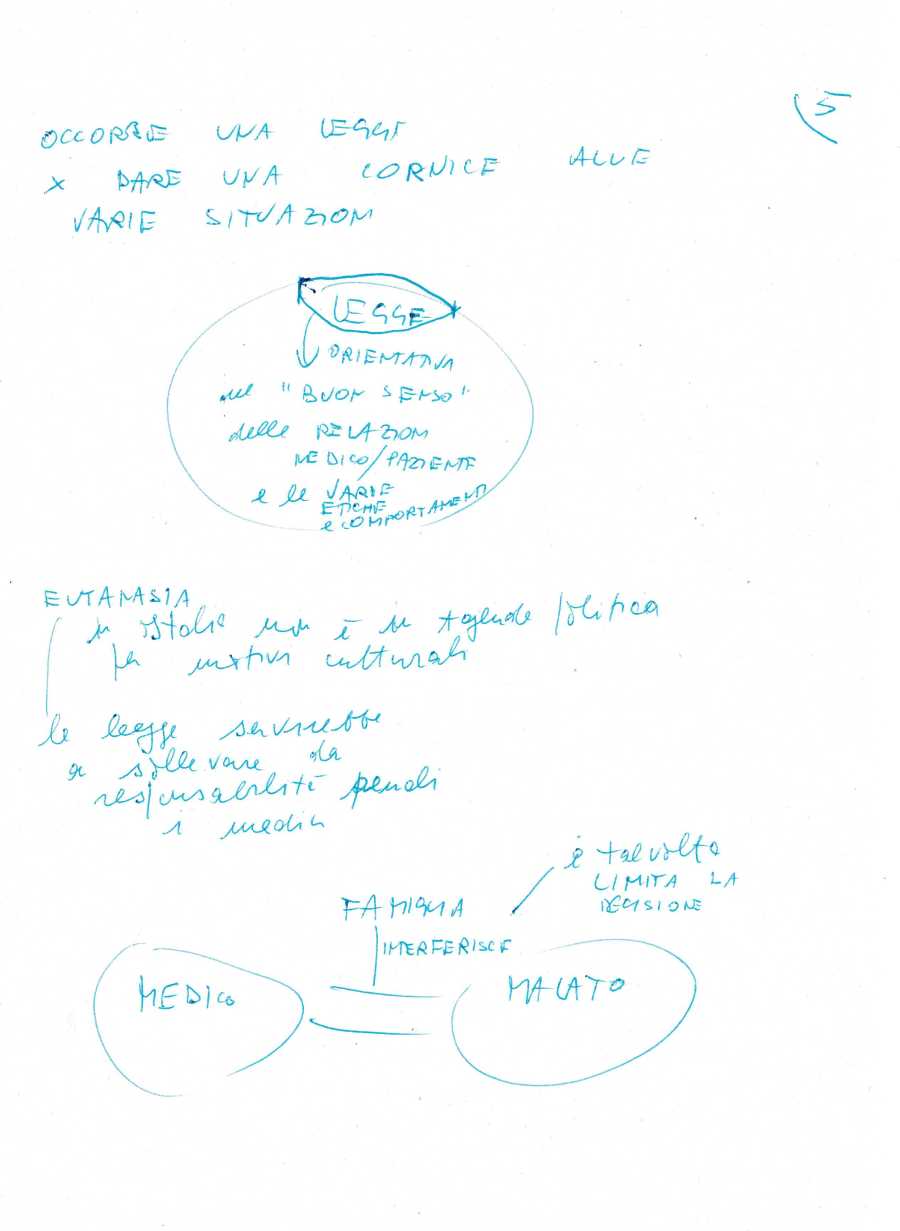 5
OCCORRE UNA LEGGE
X DARE UNA CORNICE ALLE
VARIE SITUAZIONI
LEGGE
ORIENTATIVA
nel "BUON SENSO"
delle RELAZIONI
MEDICO/PAZIENTE
e le VARIE
ETICHE
e COMPORTAMENTI
EUTANASIA
in Italia non è in agenda politica
per motivi culturali
la legge servirebbe
a sollevare da
responsabilità penali
i medici
e talvolta
LIMITA LA
DECISIONE
FAMIGLIA
INTERFERISCE
MEDICO
MALATO